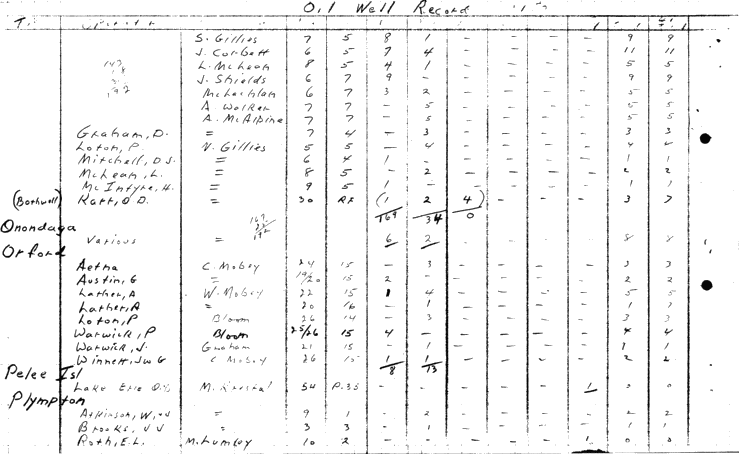 Oil Well Record
S. Gillies 7 5 8 1 - - - - 9 9
J. Corbett 6 5 7 4 - - - - 11 11
L. McLean 8 5 4 1 - - - - 5 5
J. Shields 6 7 9 - - - - - 9 9
McLachlan 6 7 3 2 - - - - 5 5
A. Walker 7 7 - 5 - - - - 5 5
A. McAlpine 7 7 - 5 - - - - 5 5
Graham, D. = 7 4 - 3 - - - - 3 3
Loton, P. N. Gillies 5 5 - 4 - - - - 4 4
Mitchell, D.J. = 6 4 1 - - - - - 1 1
McLean, L. = 8 5 - 2 - - - - 2 2
McIntyre, H. = 9 5 1 - - - - - 1 1
(Bothwell) Karr, O D. = 30 RF (1 2 4) - - - 3 7
169 34 0
Onondaga
Various = 6 2 8 8
Orford
Aetna C. Mobey 24 15 - 3 - - - - 3 3
Austin, G = 19/20 15 2 - - - - - 2 2
Lather, A W. Mobey 22 15 1 4 - - - - 5 5
Lather, A = 20 16 - 1 - - - - 1 1
Loton, P Bloom 26 14 - 3 - - - - 3 3
Warwick, P Bloom 25/26 15 4 - - - - - 4 4
Warwick, J. Graham 21 15 - 1 - - - - 1 1
Winnett, J W G C Mobey 26 15 1 1 - - - - 2 2
8 13
Pelee Isl
Lake Erie M. 54 P.35 - - - - - 1 0 0
Plympton
Atkinson, W. = 9 1 - 2 - - - - 2 2
Brooks, J J = 3 3 - 1 - - - - 1 1
Roth, E.L. M. Lumley 10 2 - - - - - 1 0 0